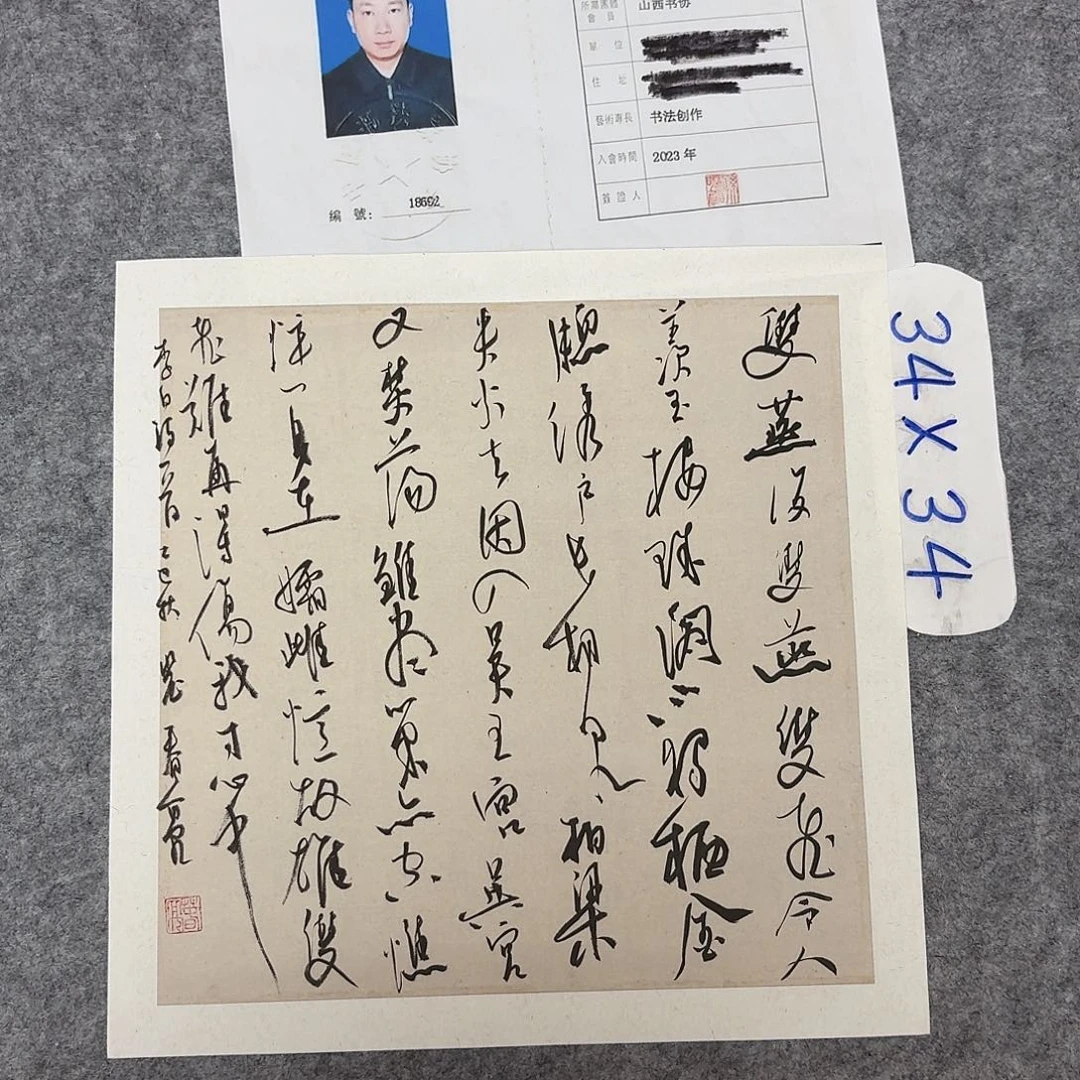 所屬團體 山西书协
會員
單位
住址
藝術專長 书法创作
入會時間 2023年
簽證人
編號: 18692
34X34
雙燕復雙燕雙飛令人
羨玉樓珠閣不獨棲金
牕繡戶長相見柏梁
失火去因入吳王宮吳宮
又焚蕩雛盡巢亦空憔
悴一身在孀雌憶故雄雙
飛難再得傷我寸心中
李白詩一首乙巳秋 春